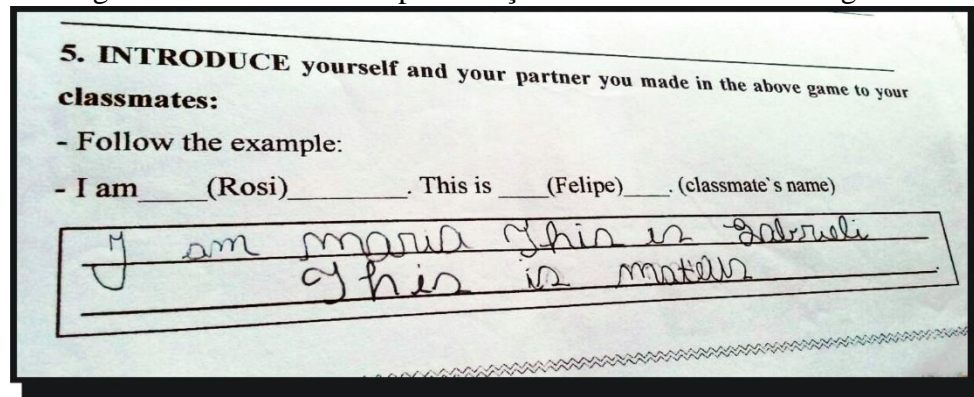 5. INTRODUCE yourself and your partner you made in the above game to your
classmates:
- Follow the example:
- I am_____(Rosi)_________. This is ____(Felipe)____. (classmate`s name)
I am maria This is Gabrieli
This is mateus